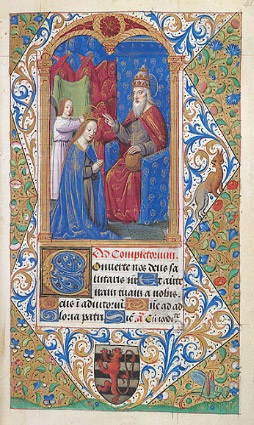 Ad Completorium.
Conuerte nos deus sa
lutaris nr̄ Et auerte
iram tuam a nobis.
Deus ī adiutoriū
Gloria patri Sic̄